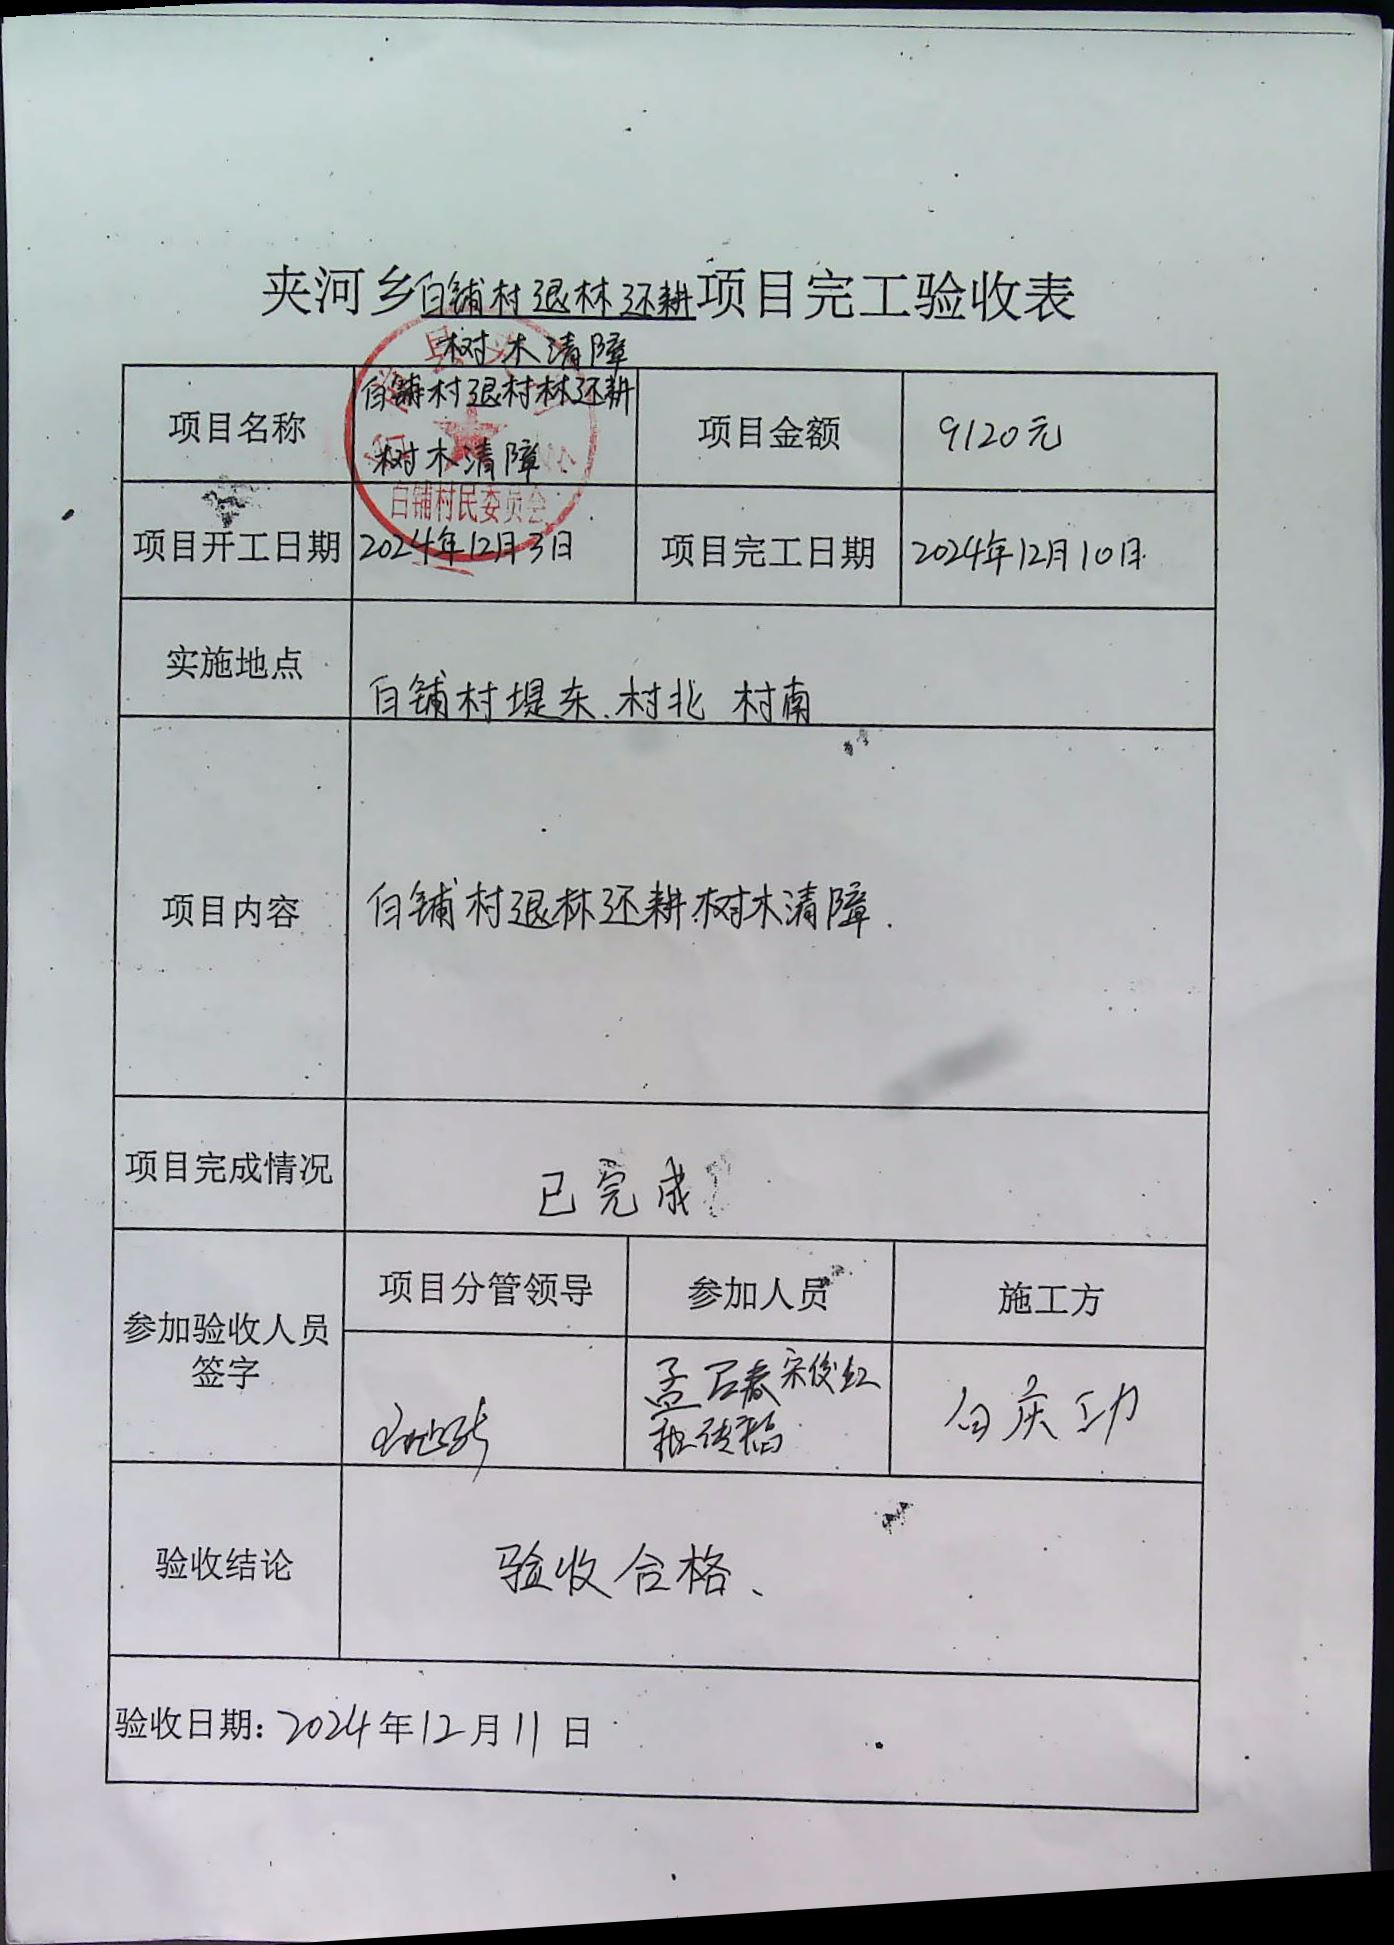 夹河乡白铺村退林还耕项目完工验收表
树木清障
项目名称
白铺村退村林还耕
树木清障
项目金额
9120元
白铺村民委员会
项目开工日期
2024年12月3日
项目完工日期
2024年12月10日
实施地点
白铺村堤东、村北 村南
项目内容
白铺村退林还耕树木清障.
项目完成情况
已完成
参加验收人员
签字
项目分管领导
参加人员
施工方
宋俊红
白庆功
验收结论
验收合格、
验收日期: 2024年12月11日